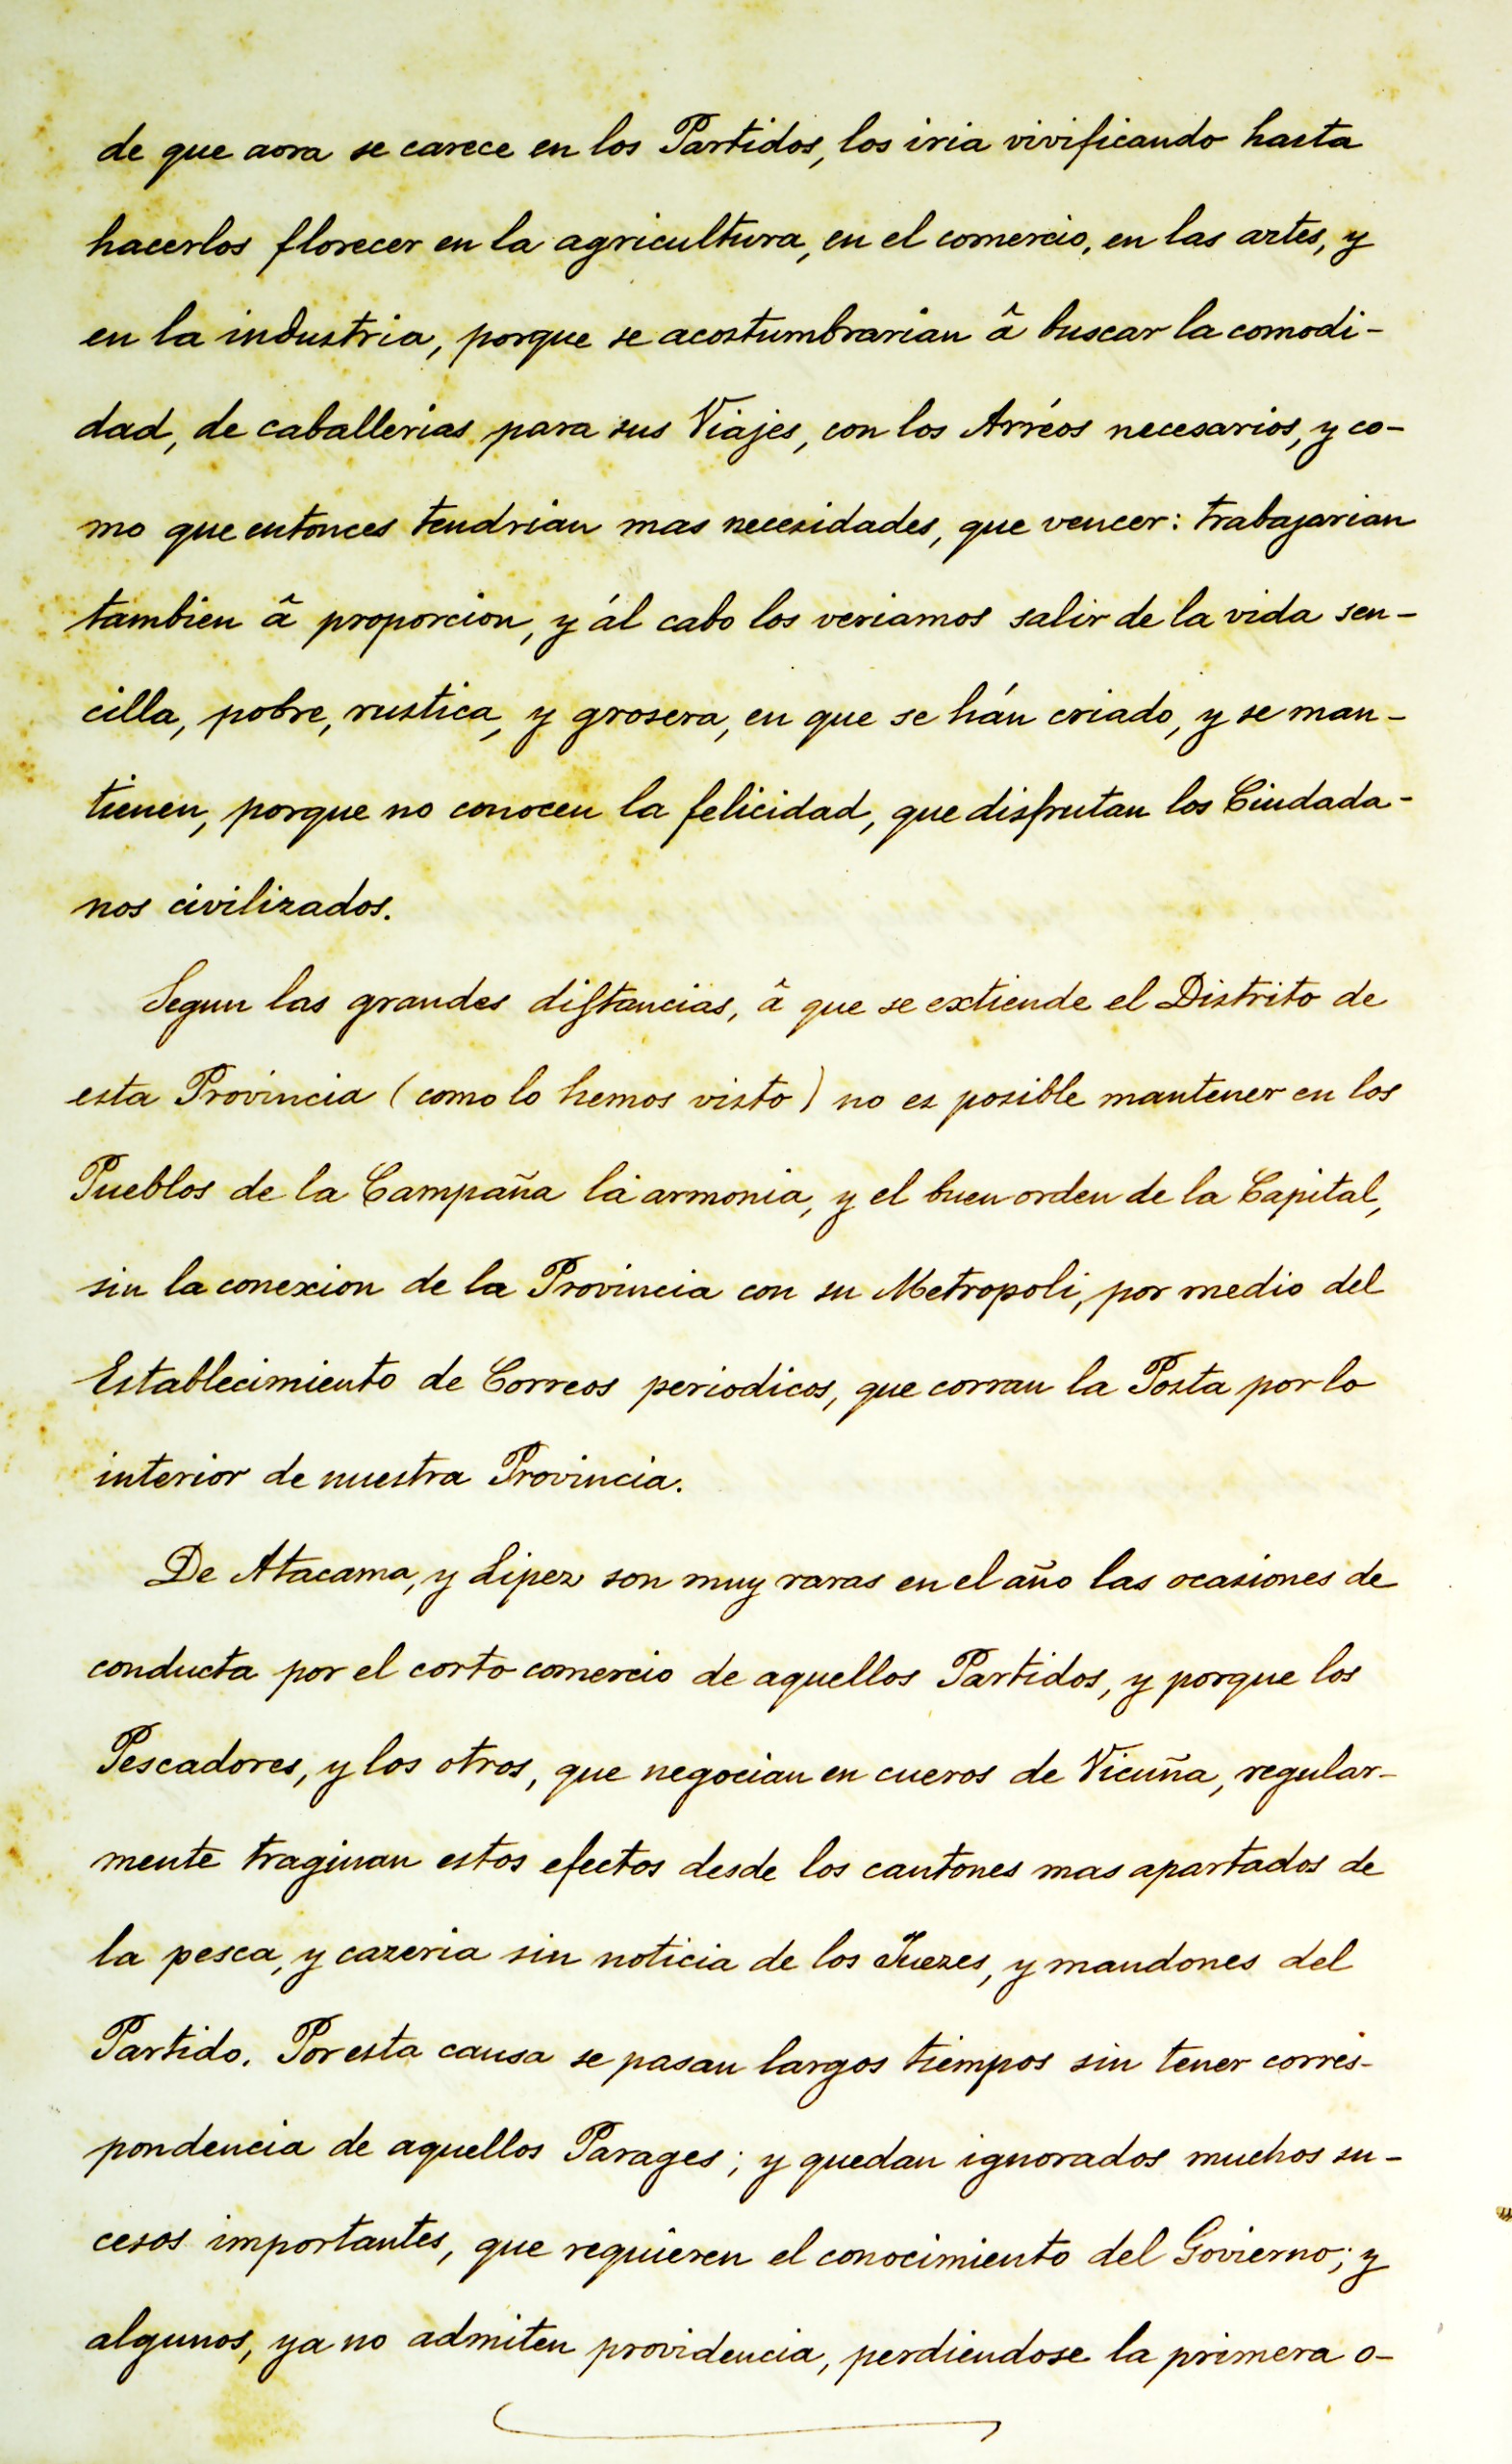 de que aora se carece en los Partidos, los iria vivificando hasta
hacerlos florecer en la agricultura, en el comercio, en las artes, y
en la industria, porque se acostumbrarian â buscar la comodi-
dad, de caballerias para sus Viajes, con los Arréos necesarios, y co-
mo que entonces tendrian mas necesidades, que vencer: trabajarian
tambien â proporcion, y ál cabo los veriamos salir de la vida sen-
cilla, pobre, rustica, y grosera, en que se hán criado, y se man-
tienen, porque no conocen la felicidad, que disfrutan los Ciudada-
nos civilizados.
Segun las grandes diſtancias, â que se extiende el Distrito de
esta Provincia (como lo hemos visto) no es posible mantener en los
Pueblos de la Campaña la armonia, y el buen orden de la Capital,
sin la conexion de la Provincia con su Metropoli, por medio del
Establecimiento de Correos periodicos, que corran la Posta por lo
interior de nuestra Provincia.
De Atacama, y Lipez son muy raras en el año las ocasiones de
conducta por el corto comercio de aquellos Partidos, y porque los
Pescadores, y los otros, que negocian en cueros de Vicuña, regular-
mente traginan estos efectos desde los cantones mas apartados de
la pesca, y cazeria sin noticia de los Juezes, y mandones del
Partido. Por esta causa se pasan largos tiempos sin tener corres-
pondencia de aquellos Parages; y quedan ignorados muchos su-
cesos importantes, que requieren el conocimiento del Govierno; y
algunos, ya no admiten providencia, perdiendose la primera o-